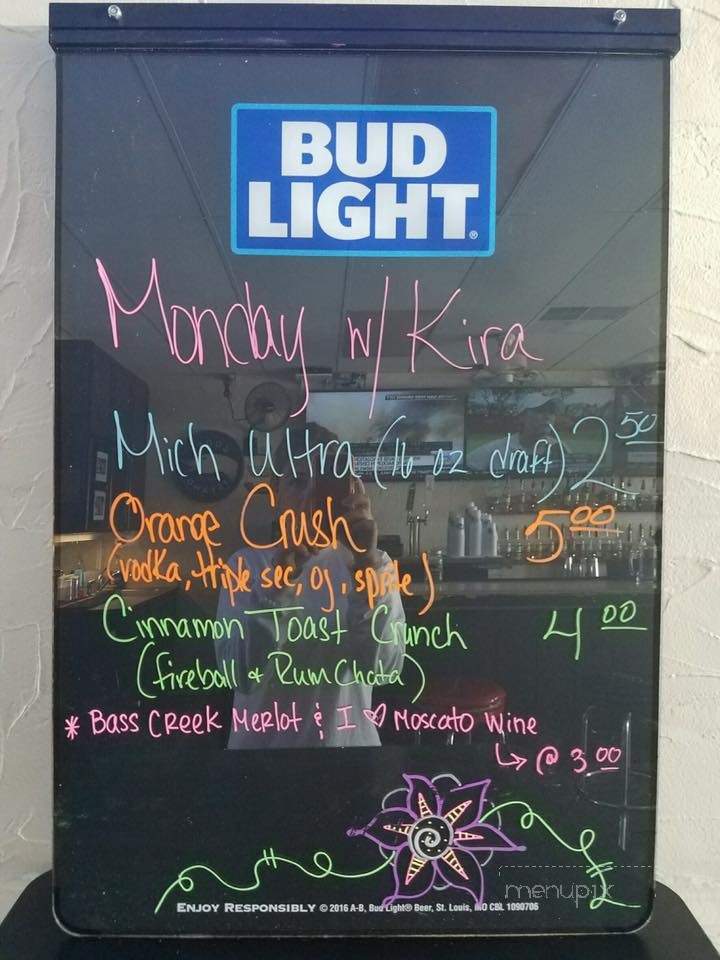 BUD
LIGHT®
Monday w/ Kira
Mich Ultra (16 oz draft) 2 50
Orange Crush 5 00
(vodka, triple sec, oj, sprite)
Cinnamon Toast Crunch 4 00
(fireball + RumChata)
* Bass Creek Merlot & I ♡ Moscato Wine
↳ @ 3 00
menupix
ENJOY RESPONSIBLY © 2016 A-B, Bud Light® Beer, St. Louis, MO CBL 1090706